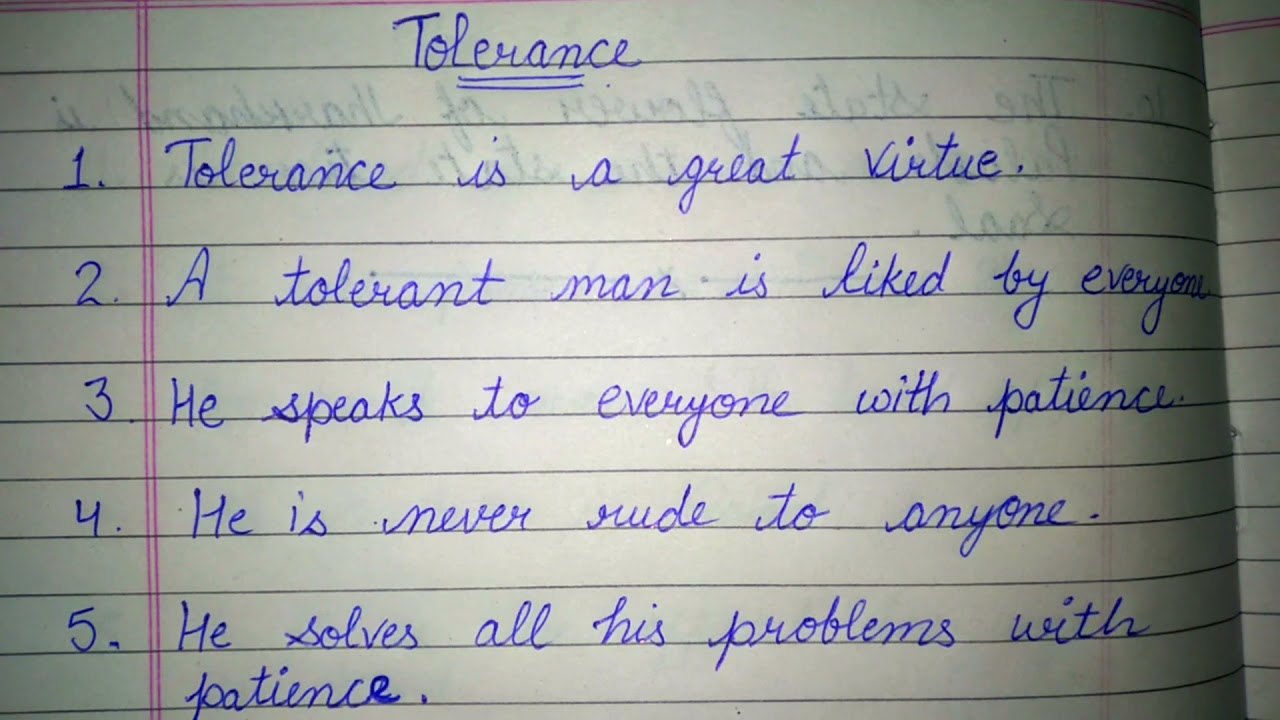 Tolerance
1. Tolerance is a great virtue.
2. A tolerant man is liked by everyone
3. He speaks to everyone with patience.
4. He is never rude to anyone.
5. He solves all his problems with
patience.